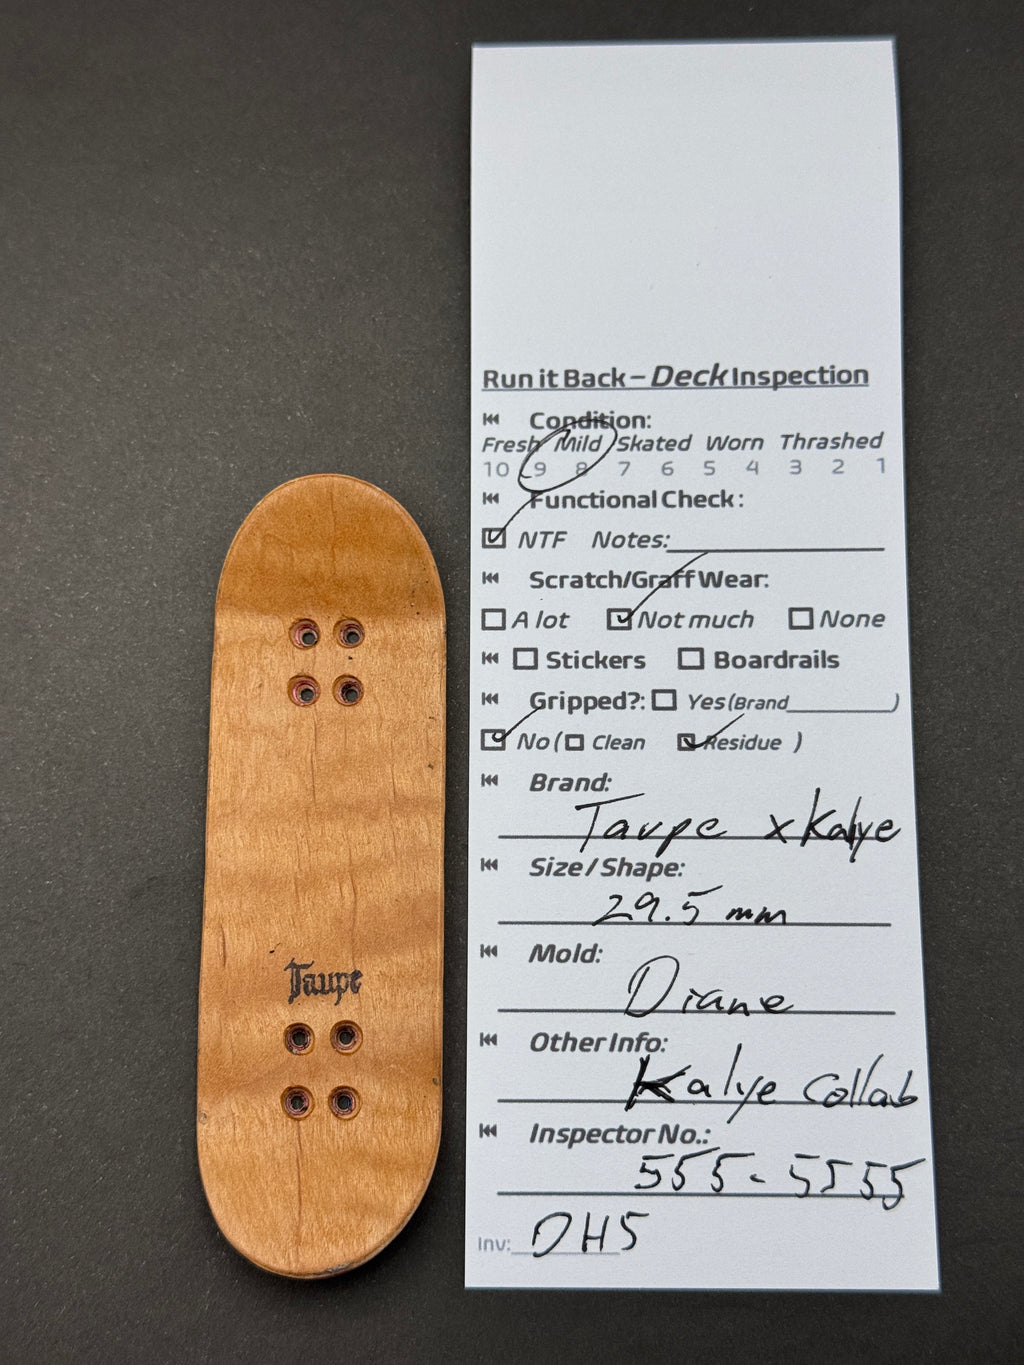 Taupe
Run it Back – Deck Inspection
Condition:
Fresh Mild Skated Worn Thrashed
10 9 8 7 6 5 4 3 2 1
Functional Check:
NTF Notes:
Scratch/Graff Wear:
A lot Not much None
Stickers Boardrails
Gripped?: Yes (Brand )
No ( Clean Residue )
Brand:
Taupe x Kalye
Size/Shape:
29.5 mm
Mold:
Diane
Other Info:
Kalye Collab
Inspector No.:
555-5555
Inv: DH5